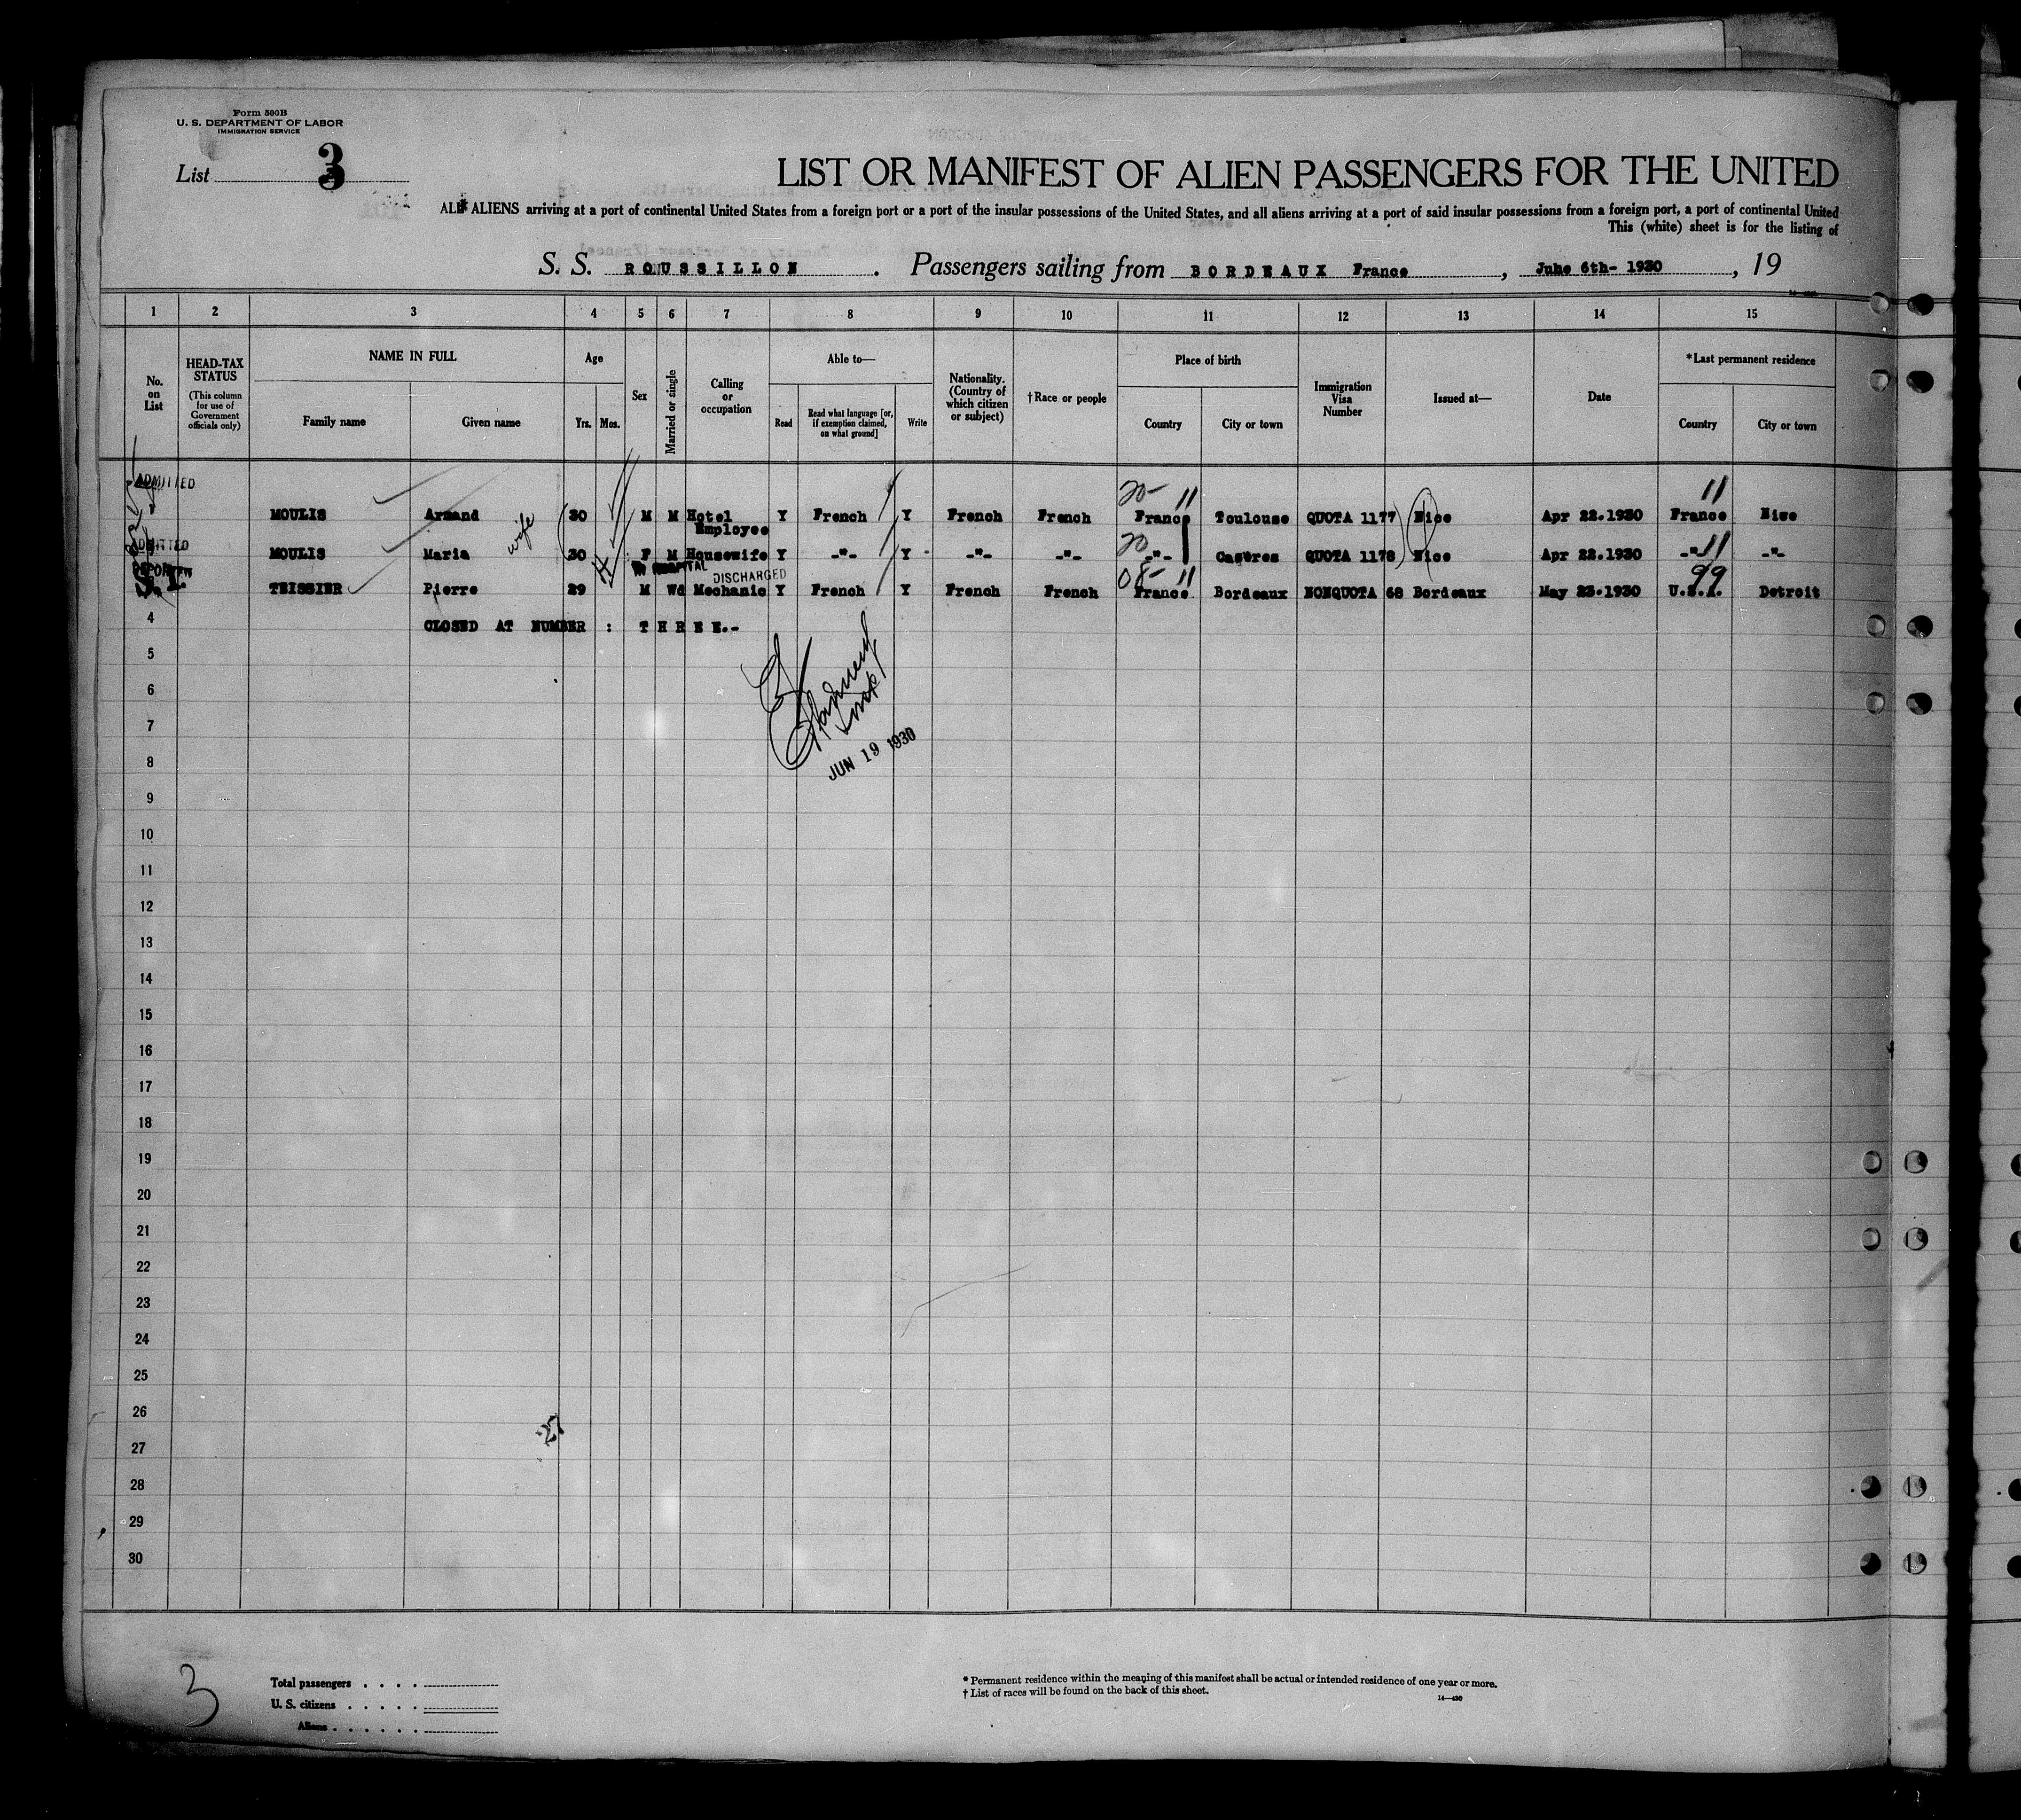 Form 500B
U. S. DEPARTMENT OF LABOR
IMMIGRATION SERVICE
List 3
LIST OR MANIFEST OF ALIEN PASSENGERS FOR THE UNITED
ALL ALIENS arriving at a port of continental United States from a foreign port or a port of the insular possessions of the United States, and all aliens arriving at a port of said insular possessions from a foreign port, a port of continental United
This (white) sheet is for the listing of
S. S. ROUSSILLON . Passengers sailing from BORDEAUX France , June 6th- 1930 , 19
1 2 3 4 5 6 7 8 9 10 11 12 13 14 15
No. on List
HEAD-TAX STATUS (This column for use of Government officials only)
NAME IN FULL
Family name Given name
Age
Yrs. Mos.
Sex
Married or single
Calling or occupation
Able to—
Read Read what language [or, if exemption claimed, on what ground] Write
Nationality. (Country of which citizen or subject)
†Race or people
Place of birth
Country City or town
Immigration Visa Number
Issued at—
Date
*Last permanent residence
Country City or town
ADMITTED
20- 11 11
MOULIS Armand 30 M M Hotel Employee Y French Y French French France Toulouse QUOTA 1177 Nice Apr 22.1930 France Nice
wife
ADMITTED
20 11
MOULIS Maria 30 F M Housewife Y -"- Y -"- -"- -"- Castres QUOTA 1178 Nice Apr 22.1930 -"- -"-
IN HOSPITAL DISCHARGED
S.I.
08- 11 99
TEISSIER Pierre 29 M Wd Mechanic Y French Y French French France Bordeaux NONQUOTA 68 Bordeaux May 23.1930 U.S.A. Detroit
4 CLOSED AT NUMBER : THREE.-
5
6
7
JUN 19 1930
8
9
10
11
12
13
14
15
16
17
18
19
20
21
22
23
24
25
26
27
27
28
29
30
3
Total passengers
U. S. citizens
Aliens
* Permanent residence within the meaning of this manifest shall be actual or intended residence of one year or more.
† List of races will be found on the back of this sheet.
14—430